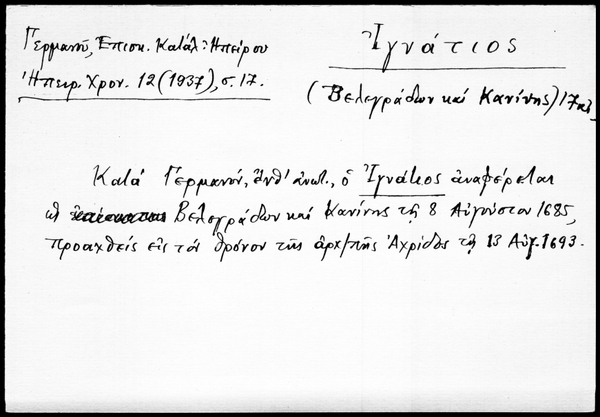 Γερμανοῦ, Ἐπισκ. Κατάλ. Ἠπείρου
Ἠπειρ. Χρον. 12 (1937), σ. 17.
Ἰγνάτιος
(Βελεγράδων καί Κανίνης) 17 αἰ.
Κατά Γερμανόν, ἔνθ' ἀνωτ., ὁ Ἰγνάτιος ἀναφέρεται
ὡς Βελεγράδων καί Κανίνης τῇ 8 Αὐγούστου 1685,
προαχθείς εἰς τόν θρόνον τῆς ἀρχ/πῆς Ἀχρίδος τῇ 13 Αὐγ. 1693.